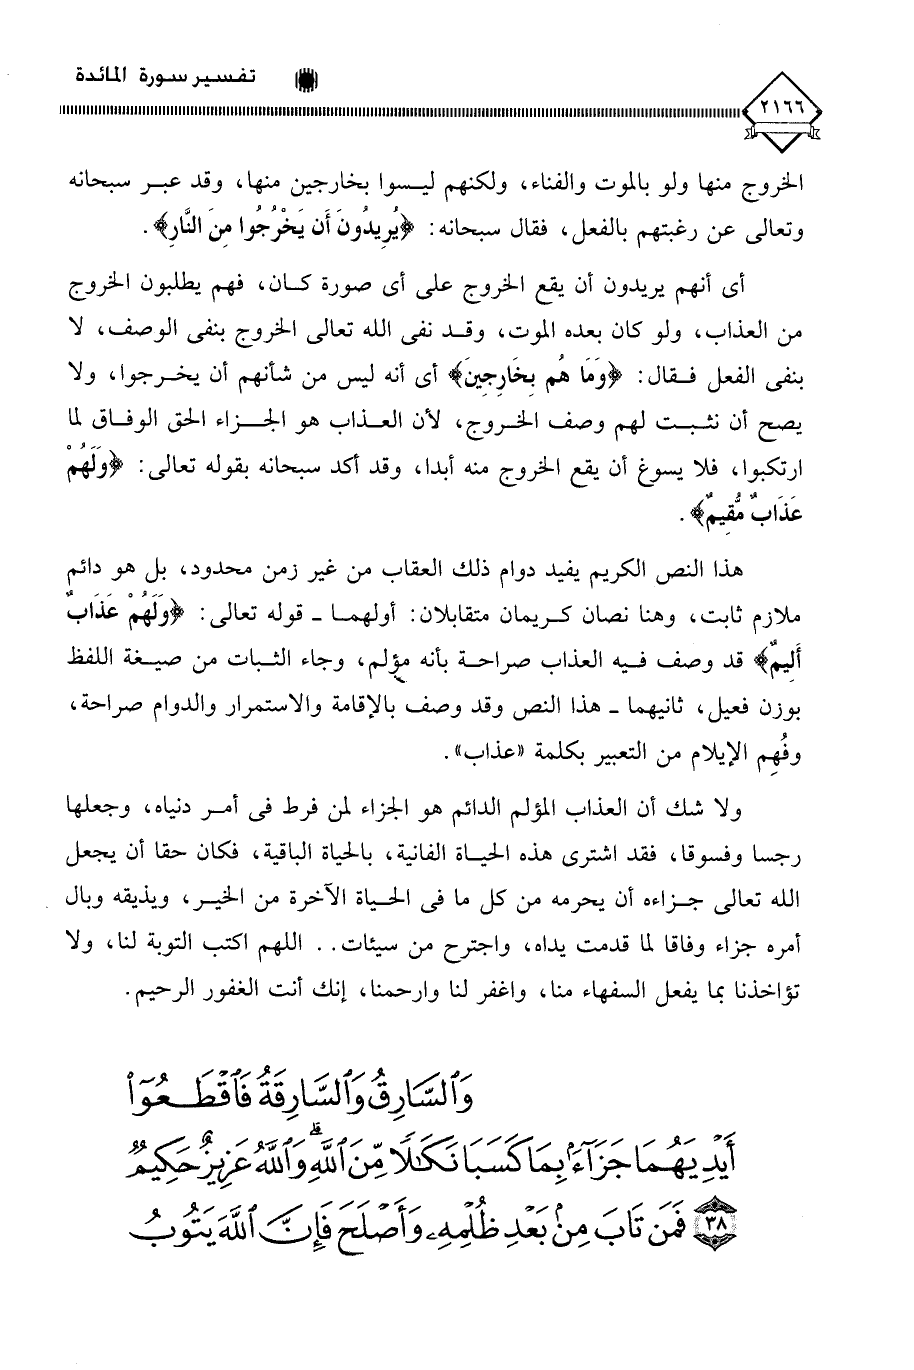 تفسير سورة المائدة
٢١٦٦
الخروج منها ولو بالموت والفناء، ولكنهم ليسوا بخارجين منها، وقد عبر سبحانه
وتعالى عن رغبتهم بالفعل، فقال سبحانه: ﴿يُرِيدُونَ أَن يَخْرُجُوا مِنَ النَّارِ﴾.
أى أنهم يريدون أن يقع الخروج على أى صورة كان، فهم يطلبون الخروج
من العذاب، ولو كان بعده الموت، وقد نفى الله تعالى الخروج بنفى الوصف، لا
بنفى الفعل فقال: ﴿وَمَا هُم بِخَارِجِينَ﴾ أى أنه ليس من شأنهم أن يخرجوا، ولا
يصح أن نثبت لهم وصف الخروج، لأن العذاب هو الجزاء الحق الوفاق لما
ارتكبوا، فلا يسوغ أن يقع الخروج منه أبدا، وقد أكد سبحانه بقوله تعالى: ﴿وَلَهُمْ
عَذَابٌ مُّقِيمٌ﴾.
هذا النص الكريم يفيد دوام ذلك العقاب من غير زمن محدود، بل هو دائم
ملازم ثابت، وهنا نصان كريمان متقابلان: أولهما ـ قوله تعالى: ﴿وَلَهُمْ عَذَابٌ
أَلِيمٌ﴾ قد وصف فيه العذاب صراحة بأنه مؤلم، وجاء الثبات من صيغة اللفظ
بوزن فعيل، ثانيهما ـ هذا النص وقد وصف بالإقامة والاستمرار والدوام صراحة،
وفُهِم الإيلام من التعبير بكلمة «عذاب».
ولا شك أن العذاب المؤلم الدائم هو الجزاء لمن فرط فى أمر دنياه، وجعلها
رجسا وفسوقا، فقد اشترى هذه الحياة الفانية، بالحياة الباقية، فكان حقا أن يجعل
الله تعالى جزاءه أن يحرمه من كل ما فى الحياة الآخرة من الخير، ويذيقه وبال
أمره جزاء وفاقا لما قدمت يداه، واجترح من سيئات.. اللهم اكتب التوبة لنا، ولا
تؤاخذنا بما يفعل السفهاء منا، واغفر لنا وارحمنا، إنك أنت الغفور الرحيم.
وَٱلسَّارِقُ وَٱلسَّارِقَةُ فَٱقْطَعُوٓا۟
أَيْدِيَهُمَا جَزَآءًۢ بِمَا كَسَبَا نَكَٰلًا مِّنَ ٱللَّهِ ۗ وَٱللَّهُ عَزِيزٌ حَكِيمٌ
٣٨ فَمَن تَابَ مِنۢ بَعْدِ ظُلْمِهِۦ وَأَصْلَحَ فَإِنَّ ٱللَّهَ يَتُوبُ